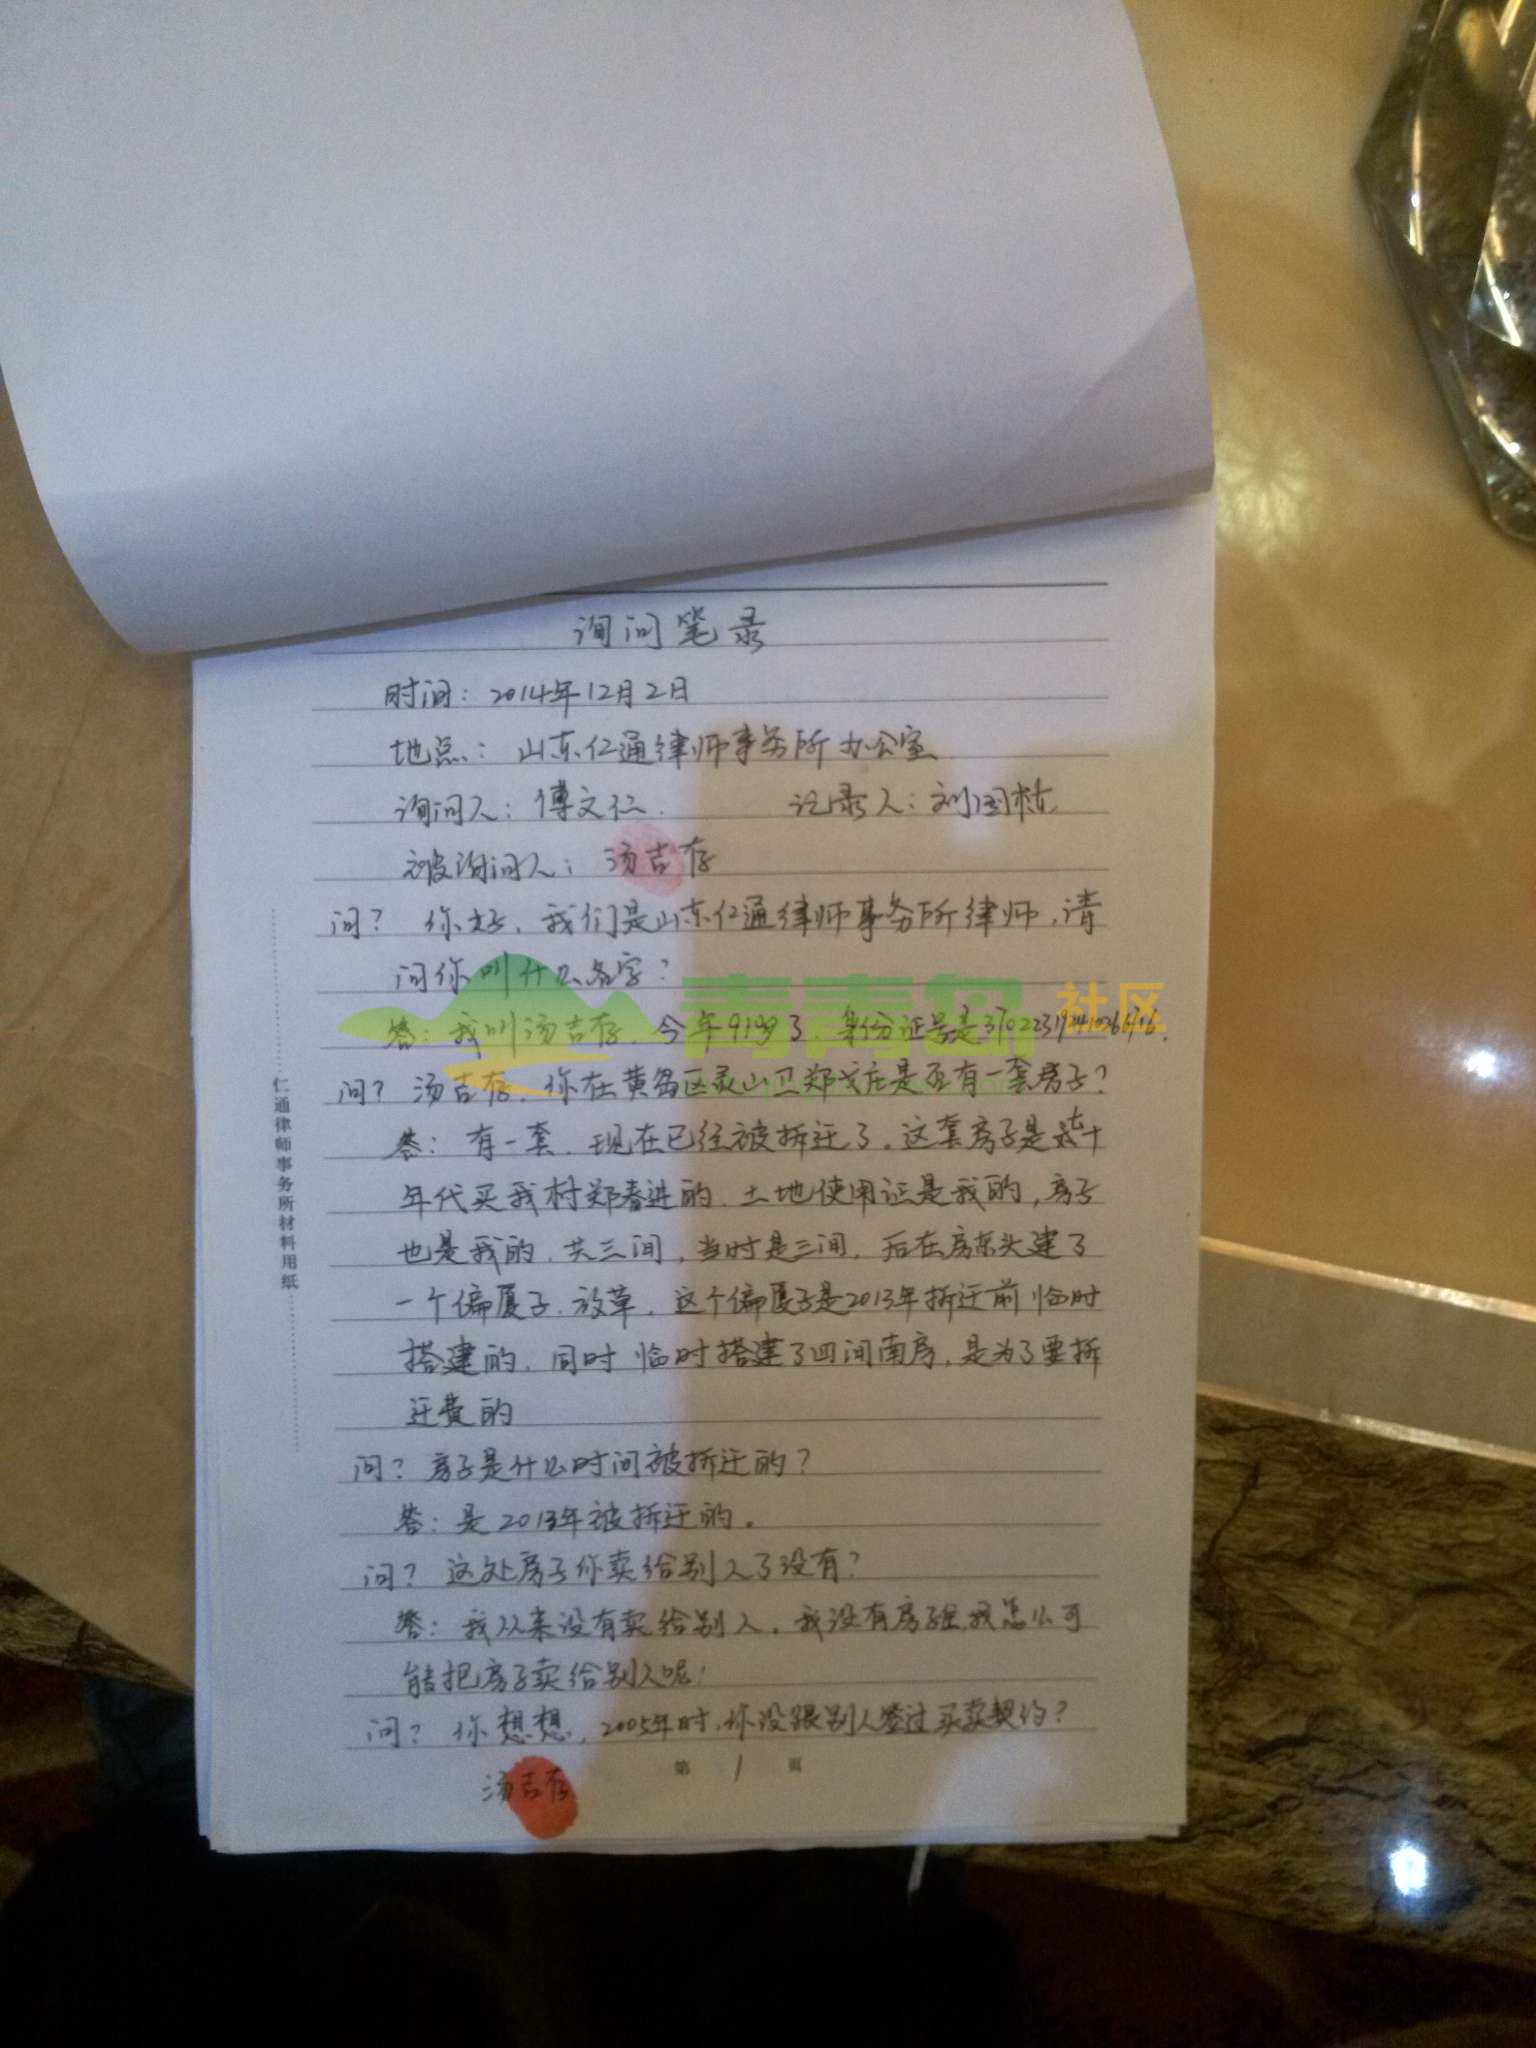 询问笔录
时间：2014年12月2日
地点：山东仁通律师事务所办公室
询问人：傅文仁. 记录人：刘国栋
被询问人：汤吉存
问？你好，我们是山东仁通律师事务所律师，请
问你叫什么名字？
青青岛 社区
答：我叫汤吉存，今年91岁了，身份证号是
问？汤吉存，你在黄岛区灵山卫郑戈庄是否有一套房子？
答：有一套，现在已经被拆迁了。这套房子是
年代买我村郑春进的，土地使用证是我的，房子
也是我的，共三间，当时是三间，后在房东头建了
一个偏厦子，放草，这个偏厦子是2013年拆迁前临时
搭建的，同时临时搭建了四间南房，是为了要拆
迁费的
问？房子是什么时间被拆迁的？
答：是2013年被拆迁的。
问？这处房子你卖给别人了没有？
答：我从来没有卖给别人。我没有房子住，我怎么可
能把房子卖给别人呢！
问？你想想，2005年时，你没跟别人签过买卖契约？
第 1 页
汤吉存
仁通律师事务所材料用纸